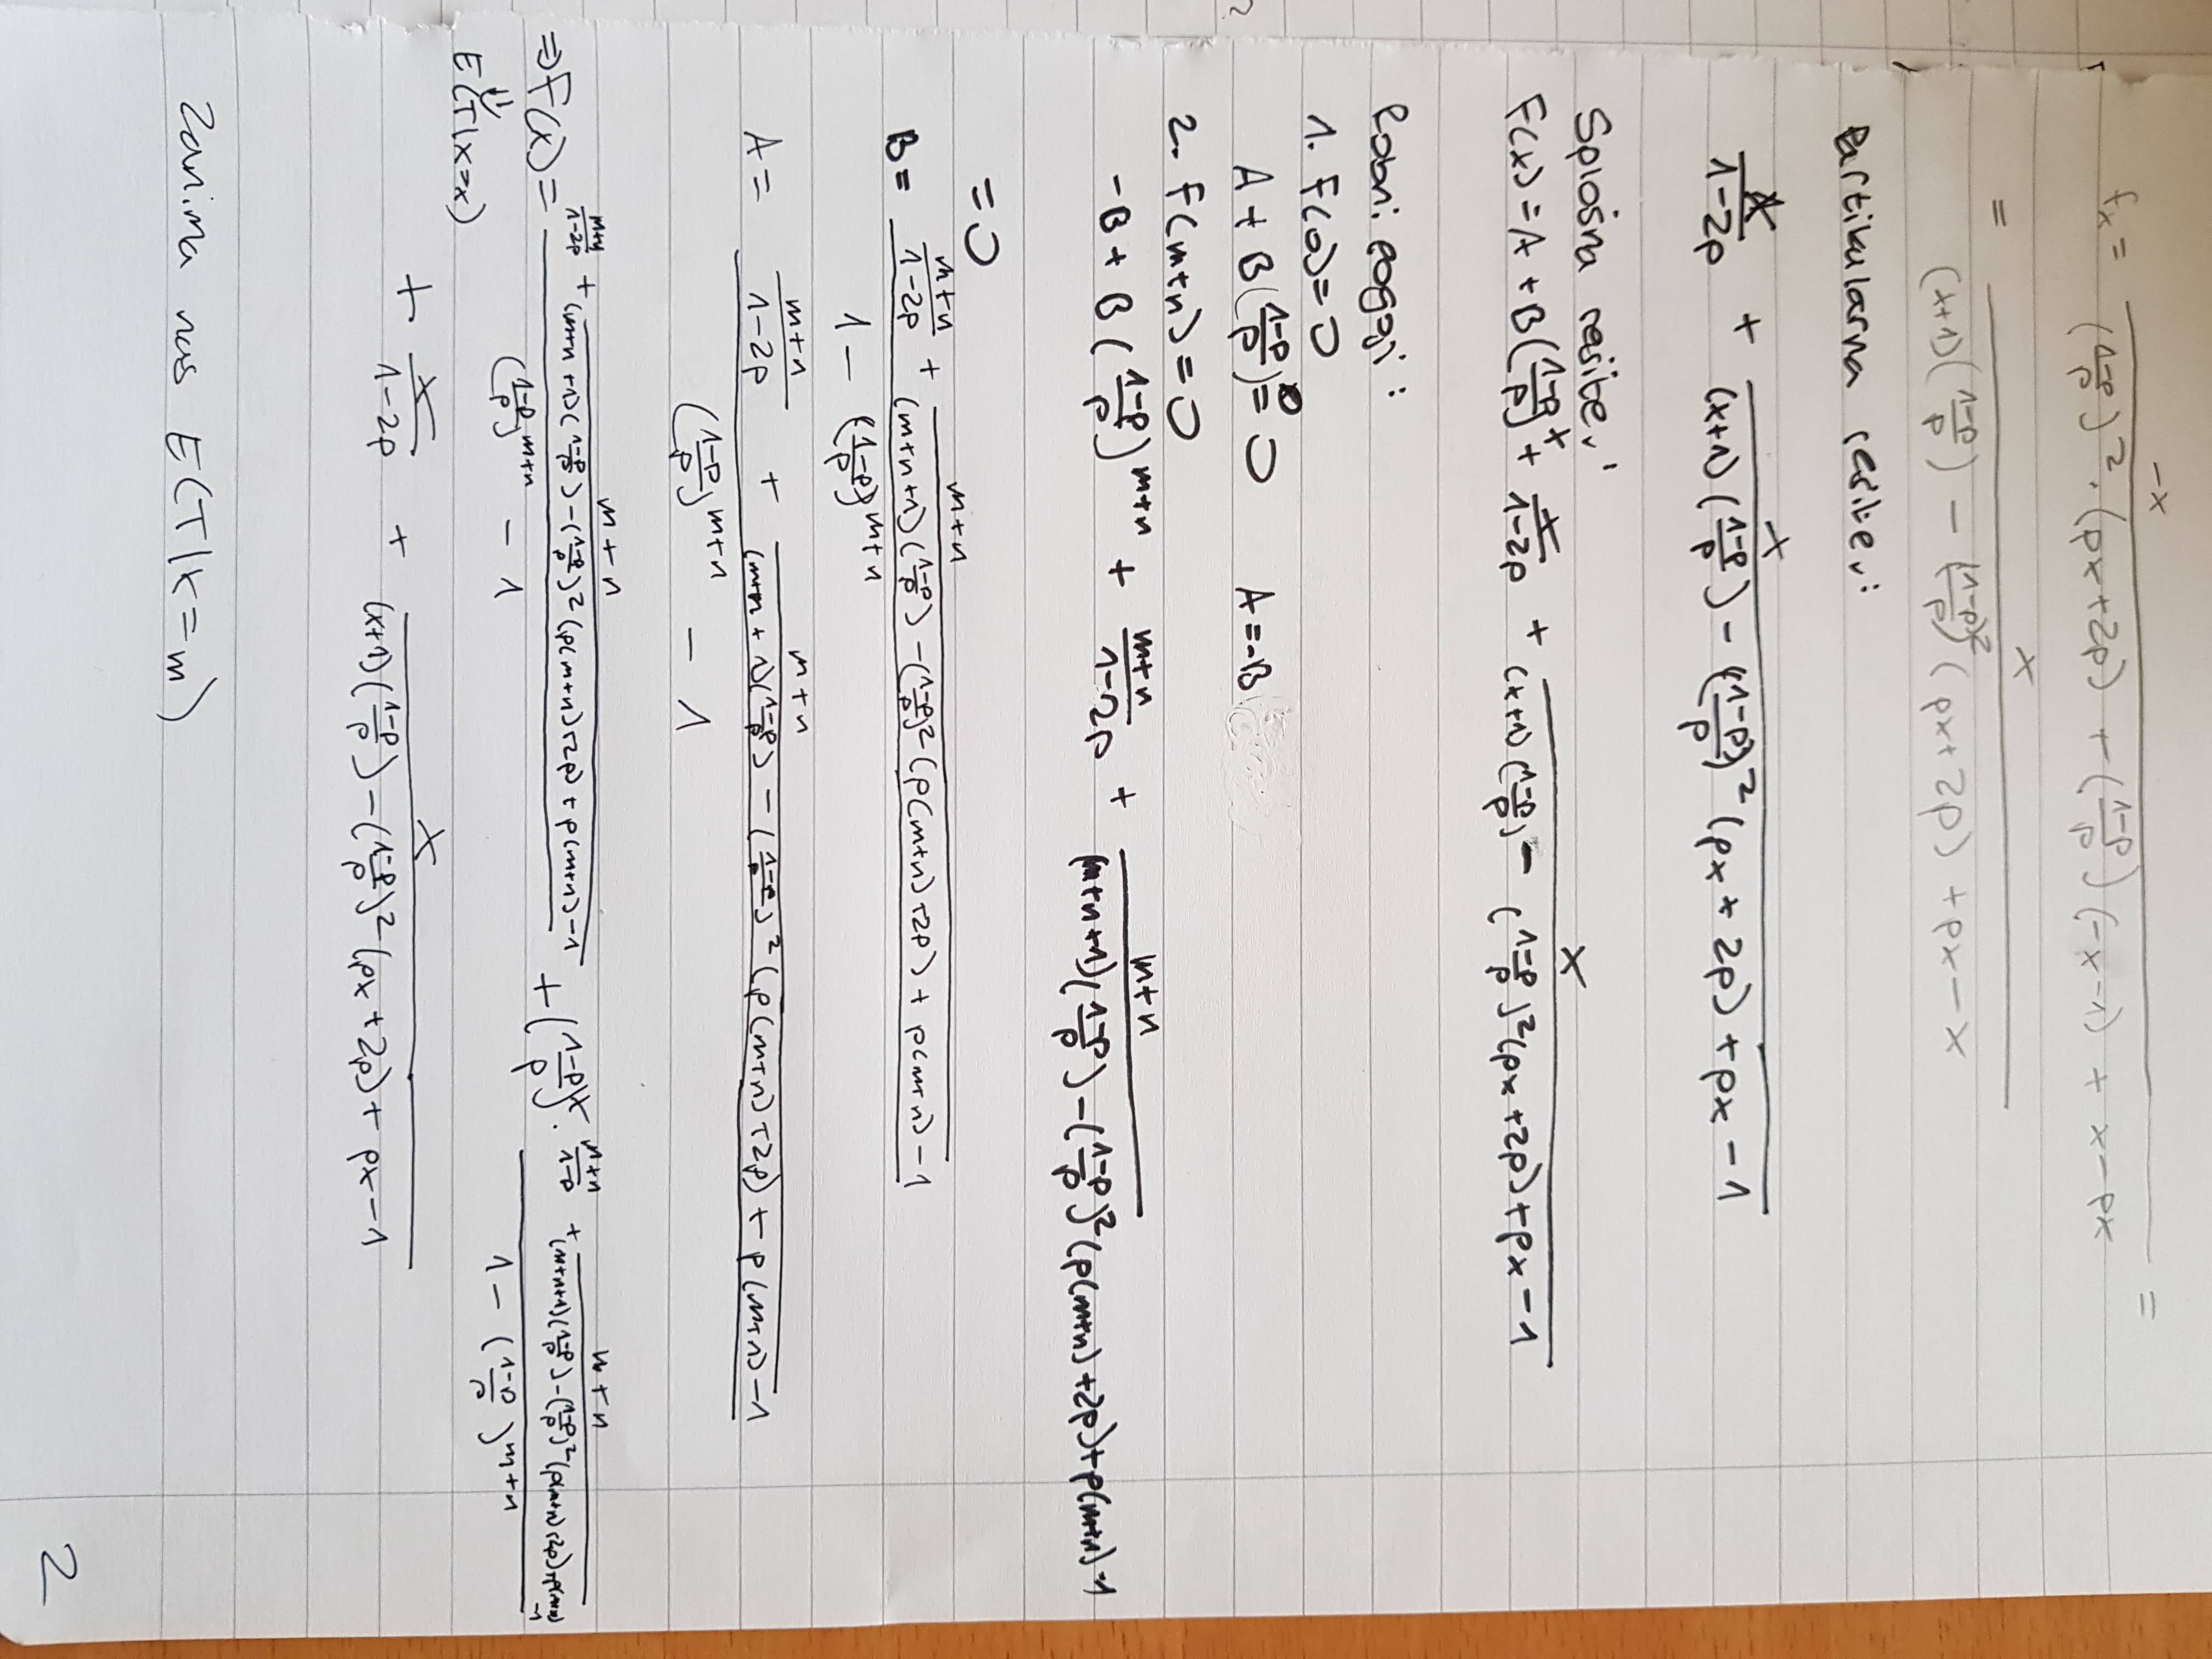 f_x = -x / ((1-p)/p)^2 · (px+2p) + ((1-p)/p)(-x-1) + x-px =
= x / (x+1)((1-p)/p) - ((1-p)/p)^2 (px+2p) + px-x
Partikularna rešitev:
x/(1-2p) + x / (x+1)((1-p)/p) - ((1-p)/p)^2 (px+2p) + px-1
Splošna rešitev
F(x) = A + B((1-p)/p)^x + x/(1-2p) + x / (x+1)((1-p)/p) - ((1-p)/p)^2 (px+2p) + px-1
Robni pogoji:
1. F(0)=0
A + B((1-p)/p)^0 = 0 A=-B
2. F(m+n)=0
-B + B((1-p)/p)^(m+n) + (m+n)/(1-2p) + (m+n) / (m+n+1)((1-p)/p) - ((1-p)/p)^2 (p(m+n)+2p) + p(m+n)-1
=0
B = [(m+n)/(1-2p) + (m+n) / (m+n+1)((1-p)/p) - ((1-p)/p)^2 (p(m+n)+2p) + p(m+n)-1] / 1 - ((1-p)/p)^(m+n)
A = [(m+n)/(1-2p) + (m+n) / (m+n+1)((1-p)/p) - ((1-p)/p)^2 (p(m+n)+2p) + p(m+n)-1] / ((1-p)/p)^(m+n) - 1
⇒ F(x) = [(m+n)/(1-2p) + (m+n) / (m+n+1)((1-p)/p) - ((1-p)/p)^2 (p(m+n)+2p) + p(m+n)-1] / ((1-p)/p)^(m+n) - 1 + ((1-p)/p)^x · [(m+n)/(1-p) + (m+n) / (m+n+1)((1-p)/p) - ((1-p)/p)^2 (p(m+n)+2p) + p(m+n)-1] / 1 - ((1-p)/p)^(m+n)
⇓
E(T|X=x)
+ x/(1-2p) + x / (x+1)((1-p)/p) - ((1-p)/p)^2 (px+2p) + px-1
Zanima nas E(T|X=m)
2